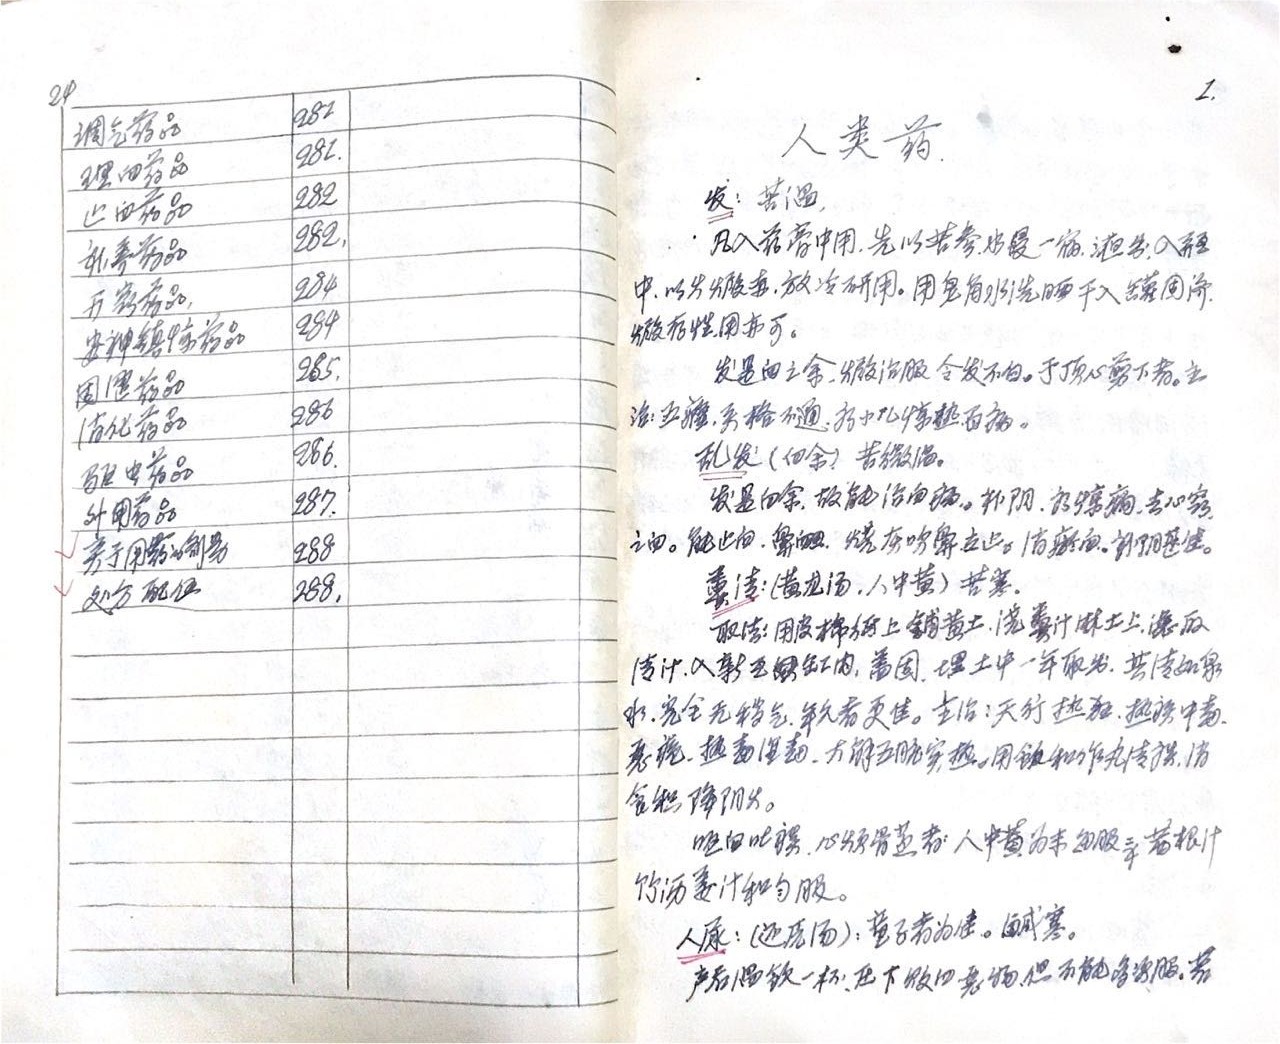 24
调气药品 281
理血药品 281.
止血药品 282
补养药品 282.
开窍药品, 284
安神镇惊药品 284
固涩药品 285.
消化药品 286
驱虫药品 286.
外用药品 287.
关于用药的剂量 288
处方配伍 288.
1.
人类药.
发: 苦温,
凡入药膏中用,先以苦参水浸一宿,漉出,入瓶
中,以火煅赤,放冷研用。用皂角水洗晒干入罐固济,
煅存性用亦可。
发是血之余,煅治服令发不白。于顶心剪下者。主
治:五癃,关格不通,疗小儿惊热百病。
乱发(血余)苦微温。
发是血余,故能治血病。补阴,疗惊痫,去心窍
之血。能止血,鼻衄,烧灰吹鼻立止。消瘀血。补阴甚佳。
粪清:(黄龙汤,人中黄)苦寒。
取法:用皮棉纸上铺黄土,浇粪汁淋土上,滤取
清汁,入新瓦缸内,盖固,埋土中一年取出,其清如泉
水,完全无秽气,年久者更佳。主治:天行热狂,热疾中毒,
恶疮,热毒湿毒,大解五脏实热。用饭和作丸清痰,消
食积降阴火。
呕血吐痰,心烦骨蒸者:人中黄为末每服三钱 茜根汁
竹沥姜汁和匀服。
人尿:(还元汤):童子者为佳。鹹寒。
产后温饮一杯,压下败血恶物,但不能多次服。若